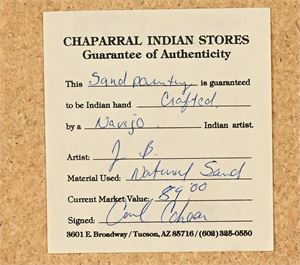 CHAPARRAL INDIAN STORES
Guarantee of Authenticity
This Sandpainting is guaranteed
to be Indian hand Crafted
by a Navajo Indian artist.
Artist: J. B.
Material Used: Natural Sand
Current Market Value: 89.00
Signed:
3601 E. Broadway / Tucson, AZ 85716 / (602) 325-0550